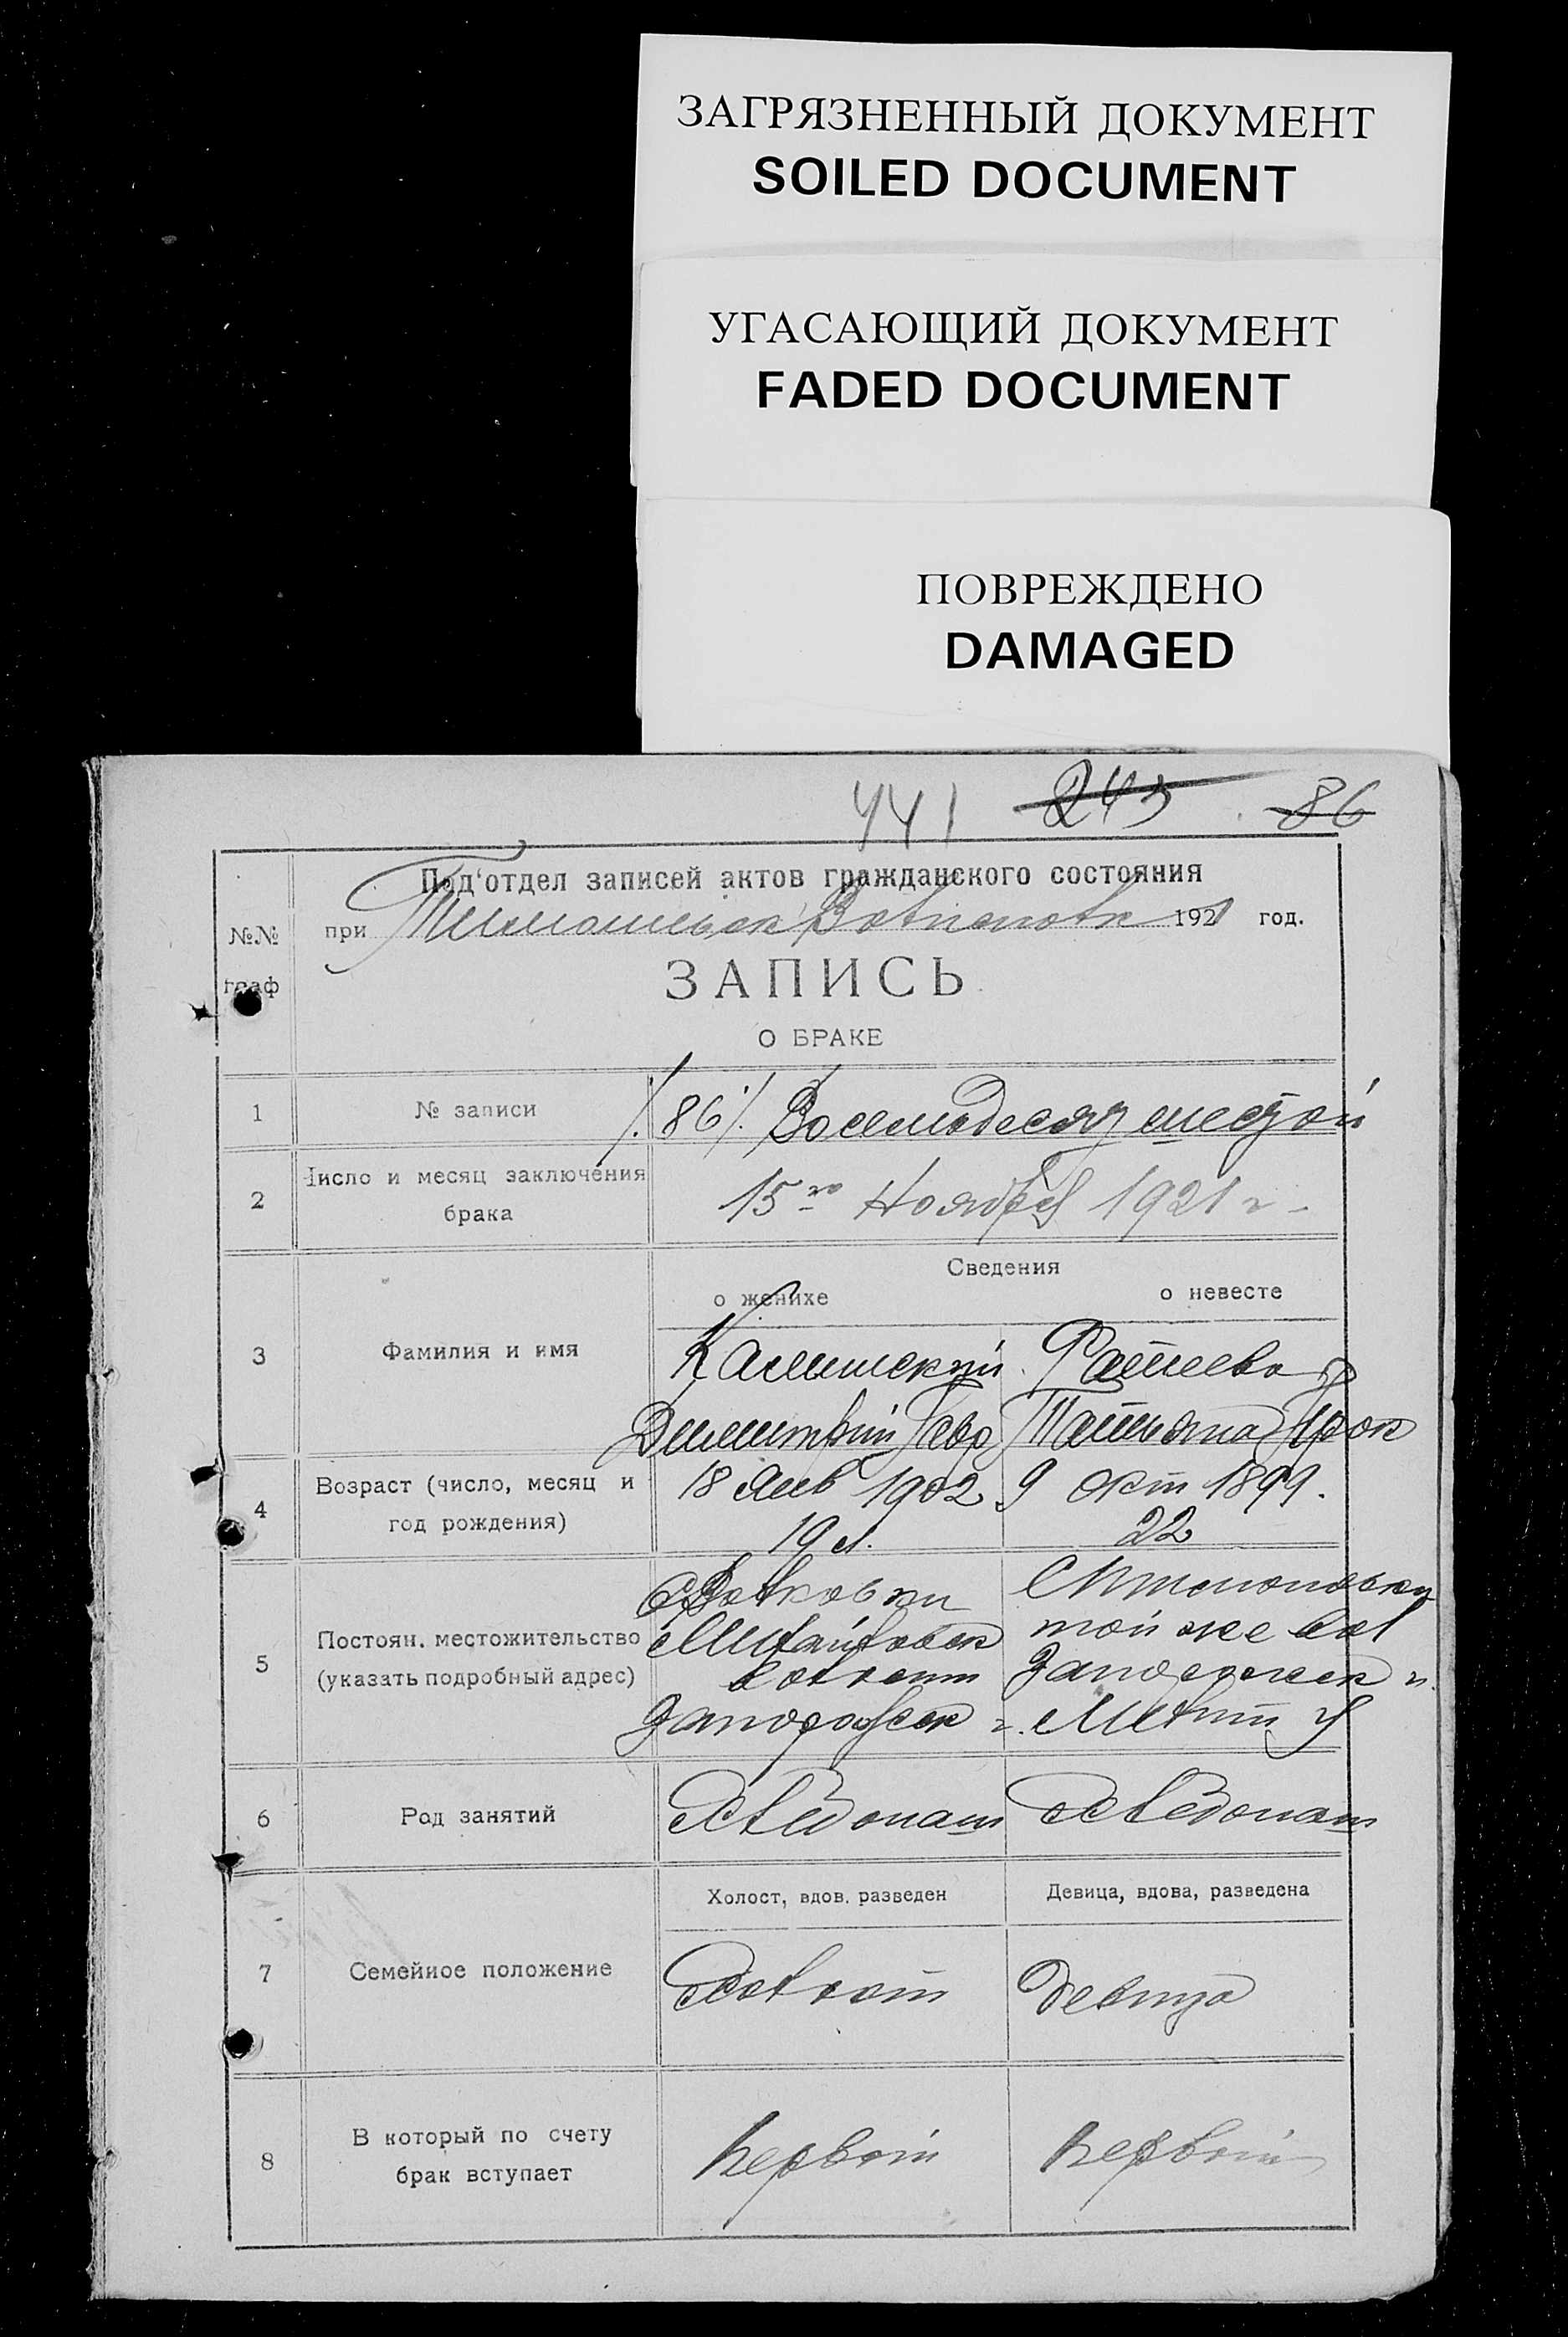 ЗАГРЯЗНЕННЫЙ ДОКУМЕНТ
SOILED DOCUMENT
УГАСАЮЩИЙ ДОКУМЕНТ
FADED DOCUMENT
ПОВРЕЖДЕНО
DAMAGED
441 243 86
Под'отдел записей актов гражданского состояния
№№ граф
при 1921 год.
ЗАПИСЬ
О БРАКЕ
1 № записи /.86/. Восемьдесят шестой
2 Число и месяц заключения брака 15го Ноября 1921 г.
Сведения
о женихе о невесте
3 Фамилия и имя
Татьяна
4 Возраст (число, месяц и год рождения)
18 Янв 1902 9 Окт 1899.
19 л. 22
5 Постоян. местожительство (указать подробный адрес)
Михайловск той же вол
Запорожск
Запорожск г. Мелит У
6 Род занятий Хлебопаш Хлебопаш
Холост, вдов. разведен Девица, вдова, разведена
7 Семейное положение Холост Девица
8 В который по счету брак вступает первый первый